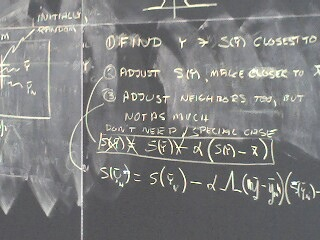 INITIALLY
RANDOM
m
① FIND r̄ ∋ S(r̄) CLOSEST TO
② ADJUST S(r̄), MAKE CLOSER TO X
③ ADJUST NEIGHBORS TOO, BUT
NOT AS MUCH
DON'T NEED / SPECIAL CASE
S(r̄) = S(r̄) - α (S(r̄) - x̄)